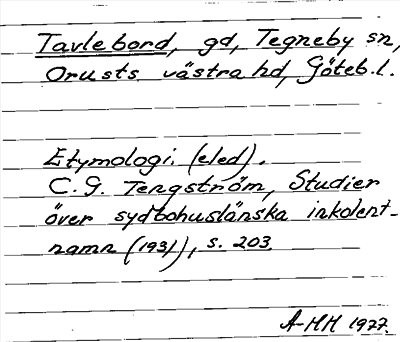 Tavlebord, gd, Tegneby sn,
Orusts västra hd, Göteb.l.
Etymologi. (eled).
C. G. Tengström, Studier
över sydbohuslänska inkolent-
namn (1931), s. 203.
A-HH 1977.